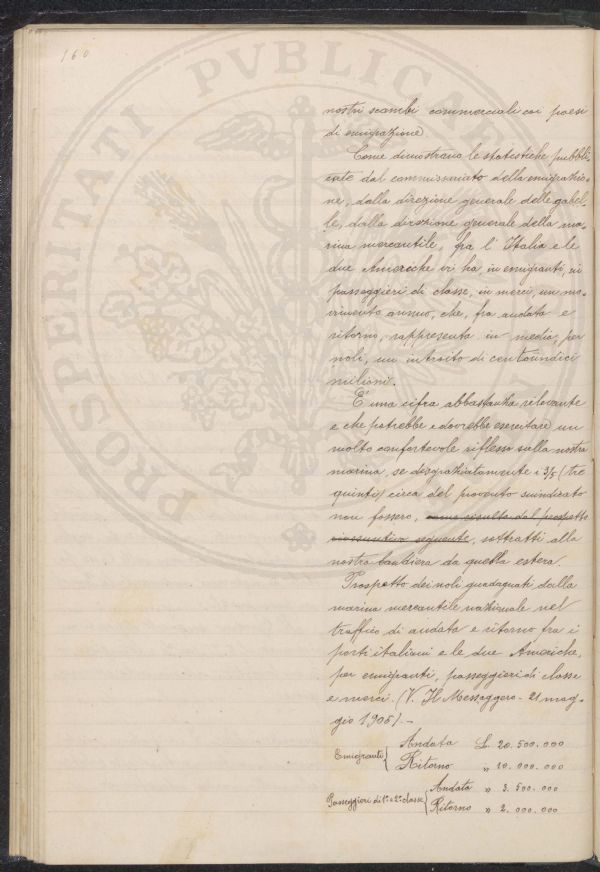 160
PROSPERITATI PVBLICAE
nostri scambi commerciali coi paesi
di emigrazione
Come dimostrano le statistiche pubbli-
cate dal commissariato della emigrazio-
ne, dalla direzione generale delle gabel-
le, dalla direzione generale della ma-
rina mercantile, fra l' Italia e le
due Americhe vi ha, in emigranti, in
passeggieri di classe, in merci, un mo-
vimento annuo, che, fra andata e
ritorno, rappresenta in media, per
noli, un introito di centoundici
milioni.
E' una cifra abbastanza rilevante
e che potrebbe e dovrebbe esercitare un
molto confortevole riflesso sulla nostra
marina, se disgraziatamente i 3/5 (tre
quinti) circa del provento suindicato
non fossero, come risulta dal prospetto
riassuntivo seguente, sottratti alla
nostra bandiera da quella estera.
Prospetto dei noli guadagnati dalla
marina mercantile nazionale nel
traffico di andata e ritorno fra i
porti italiani e le due Americhe,
per emigranti, passeggieri di classe
e merci. (V. Il Messaggero - 21 mag-
gio 1905). -
Emigranti { Andata L. 20.500.000
Ritorno " 10.000.000
Passeggieri di 1ª e 2ª classe { Andata " 3.500.000
Ritorno " 2.000.000